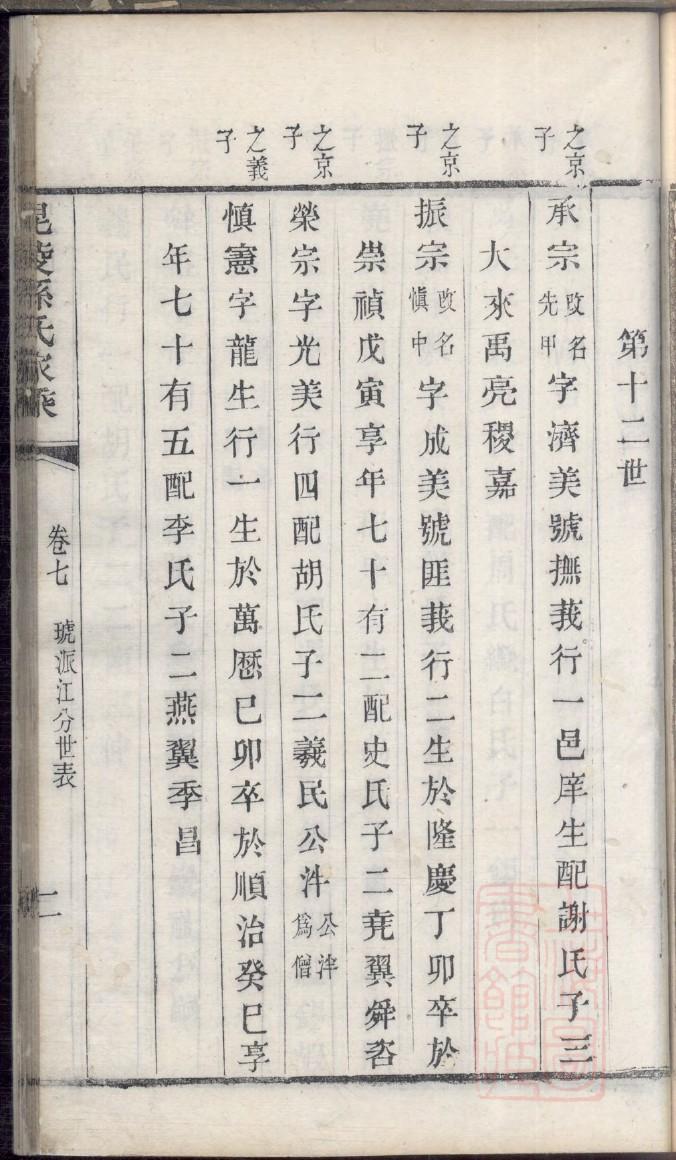 第十二世
之京
子
承宗改名先甲字濟美號撫莪行一邑庠生配謝氏子三
大來禹亮稷嘉
之京
子
振宗改名慎中字成美號匪莪行二生於隆慶丁卯卒於
崇禎戊寅享年七十有二配史氏子二堯翼舜咨
之京
子
榮宗字光美行四配胡氏子二羲民公泮公泮為僧
之義
子
慎憲字龍生行一生於萬厯巳卯卒於順治癸巳享
年七十有五配李氏子二燕翼季昌
毘陵孫氏家乘
卷七
琥派江分世表
二